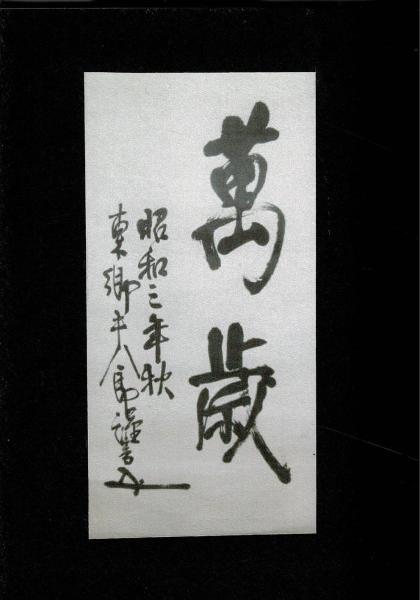 萬歳
昭和三年秋
東郷平八郎謹書